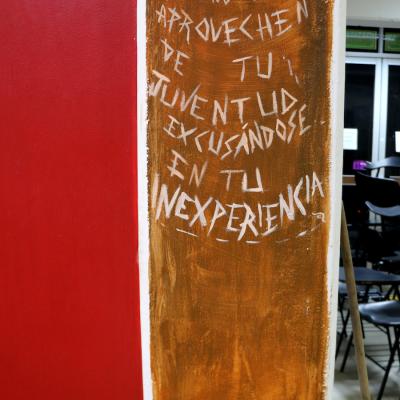 APROVECHEN
DE TU
JUVENTUD
EXCUSÁNDOSE
EN TU
INEXPERIENCIA